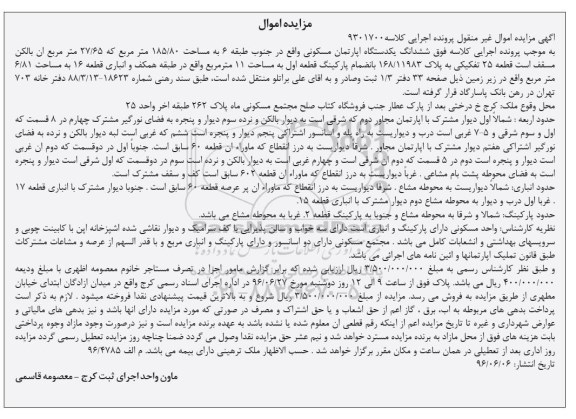 مزایده اموال
آگهی مزایده اموال غیر منقول پرونده اجرایی کلاسه ۹۳۰۱۷۰۰
به موجب پرونده اجرایی کلاسه فوق ششدانگ یکدستگاه آپارتمان مسکونی واقع در جنوب طبقه ۶ به مساحت ۱۸۵/۸۰ متر مربع که ۲۷/۶۵ متر مربع آن بالکن
مسقف است قطعه ۲۵ تفکیکی به پلاک ۱۶۸/۱۱۹۸۳ بانضمام پارکینگ قطعه اول به مساحت ۱۱ مترمربع واقع در طبقه همکف و انباری قطعه ۱۶ به مساحت ۶/۸۱
متر مربع واقع در زیر زمین ذیل صفحه ۳۳ دفتر ۱/۳ ثبت وصادر و به آقای علی براتلو منتقل شده است، طبق سند رهنی شماره ۱۸۶۲۳-۸۸/۳/۱۳ دفتر خانه ۷۰۳
تهران در رهن بانک پاسارگاد قرار گرفته است.
محل وقوع ملک: کرج خ درختی بعد از پارک عطار جنب فروشگاه کتاب صلح مجتمع مسکونی ماه پلاک ۲۶۲ طبقه آخر واحد ۲۵
حدود اربعه : شمالا اول دیوار مشترک با آپارتمان مجاور دوم که شرقی است به دیوار بالکن و نرده سوم دیوار و پنجره به فضای نورگیر مشترک چهارم در ۸ قسمت که
اول و سوم شرقی و ۵-۷ غربی است درب و دیواریست به راه پله و آسانسور اشتراکی پنجم دیوار و پنجره است ششم که غربی است لبه دیوار بالکن و نرده به فضای
نورگیر اشتراکی هفتم دیوار مشترک با آپارتمان مجاور . شرقا دیواریست به درز انقطاع که ماوراء آن قطعه ۶۰ سابق است. جنوبا اول در دوقسمت که دوم آن غربی
است دیوار و پنجره است دوم در ۵ قسمت که دوم آن شرقی است و چهارم غربی است به دیوار بالکن و نرده است سوم در دوقسمت که اول شرقی است دیوار و پنجره
است به فضای محوطه پشت بام مشاعی . غربا دیواریست به درز انقطاع که ماوراء آن قطعه ۶۰۲ سابق است کف و سقف مشترک است.
حدود انباری: شمالا دیواریست به محوطه مشاع . شرقا دیواریست به درز انقطاع که ماوراء آن پر عرصه قطعه ۶۰ سابق است . جنوبا دیوار مشترک با انباری قطعه ۱۷
. غربا اول درب و دیوار به محوطه مشاع دوم دیوار مشترک با انباری قطعه ۱۵.
حدود پارکینگ: شمالا و شرقا به محوطه مشاع و جنوبا به پارکینگ قطعه ۲. غربا به محوطه مشاع می باشد.
نظریه کارشناس: واحد مسکونی دارای پارکینگ و انباری است دارای سه خواب و سالن پذیرایی با کف سرامیک و دیوار نقاشی شده آشپزخانه اپن با کابینت چوبی و
سرویسهای بهداشتی و انشعابات کامل می باشد . مجتمع مسکونی دارای دو آسانسور و دارای پارکینگ و انباری مربع و با قدر السهم از عرصه و مشاعات مشترکات
طبق قانون تملیک آپارتمانها و آئین نامه های اجرائی می باشد.
و طبق نظر کارشناس رسمی به مبلغ ۳/۵۰۰/۰۰۰/۰۰۰ ریال ارزیابی شده که برابر گزارش مامور اجرا در تصرف مستاجر خانوم معصومه اطهری با مبلغ ودیعه
۴۰۰/۰۰۰/۰۰۰ ریال می باشد. پلاک فوق از ساعت ۹ الی ۱۲ روز دوشنبه مورخ ۹۶/۰۶/۲۷ در اداره اجرای اسناد رسمی کرج واقع در میدان آزادگان ابتدای خیابان
مطهری از طریق مزایده به فروش می رسد. مزایده از مبلغ ۳/۵۰۰/۰۰۰/۰۰۰ ریال شروع و به بالاترین قیمت پیشنهادی نقدا فروخته میشود . لازم به ذکر است
پرداخت بدهی های مربوطه به آب، برق ، گاز اعم از حق انشعاب و یا حق اشتراک و مصرف در صورتی که مورد مزایده دارای آنها باشد و نیز بدهی های مالیاتی و
عوارض شهرداری و غیره تا تاریخ مزایده اعم از اینکه رقم قطعی آن معلوم شده یا نشده باشد به عهده برنده مزایده است و نیز درصورت وجود مازاد وجوه پرداختی
بابت هزینه های فوق از محل مازاد به برنده مزایده مسترد خواهد شد و نیم عشر حق مزایده نقدا وصول می گردد ضمنا چنانچه روز مزایده تعطیل رسمی گردد مزایده
روز اداری بعد از تعطیلی در همان ساعت و مکان مقرر برگزار خواهد شد . حسب الاظهار ملک ترهینی دارای بیمه می باشد. م الف ۹۶/۴۷۸۵
تاریخ انتشار: ۹۶/۰۶/۰۶
ماون واحد اجرای ثبت کرج - معصومه قاسمی